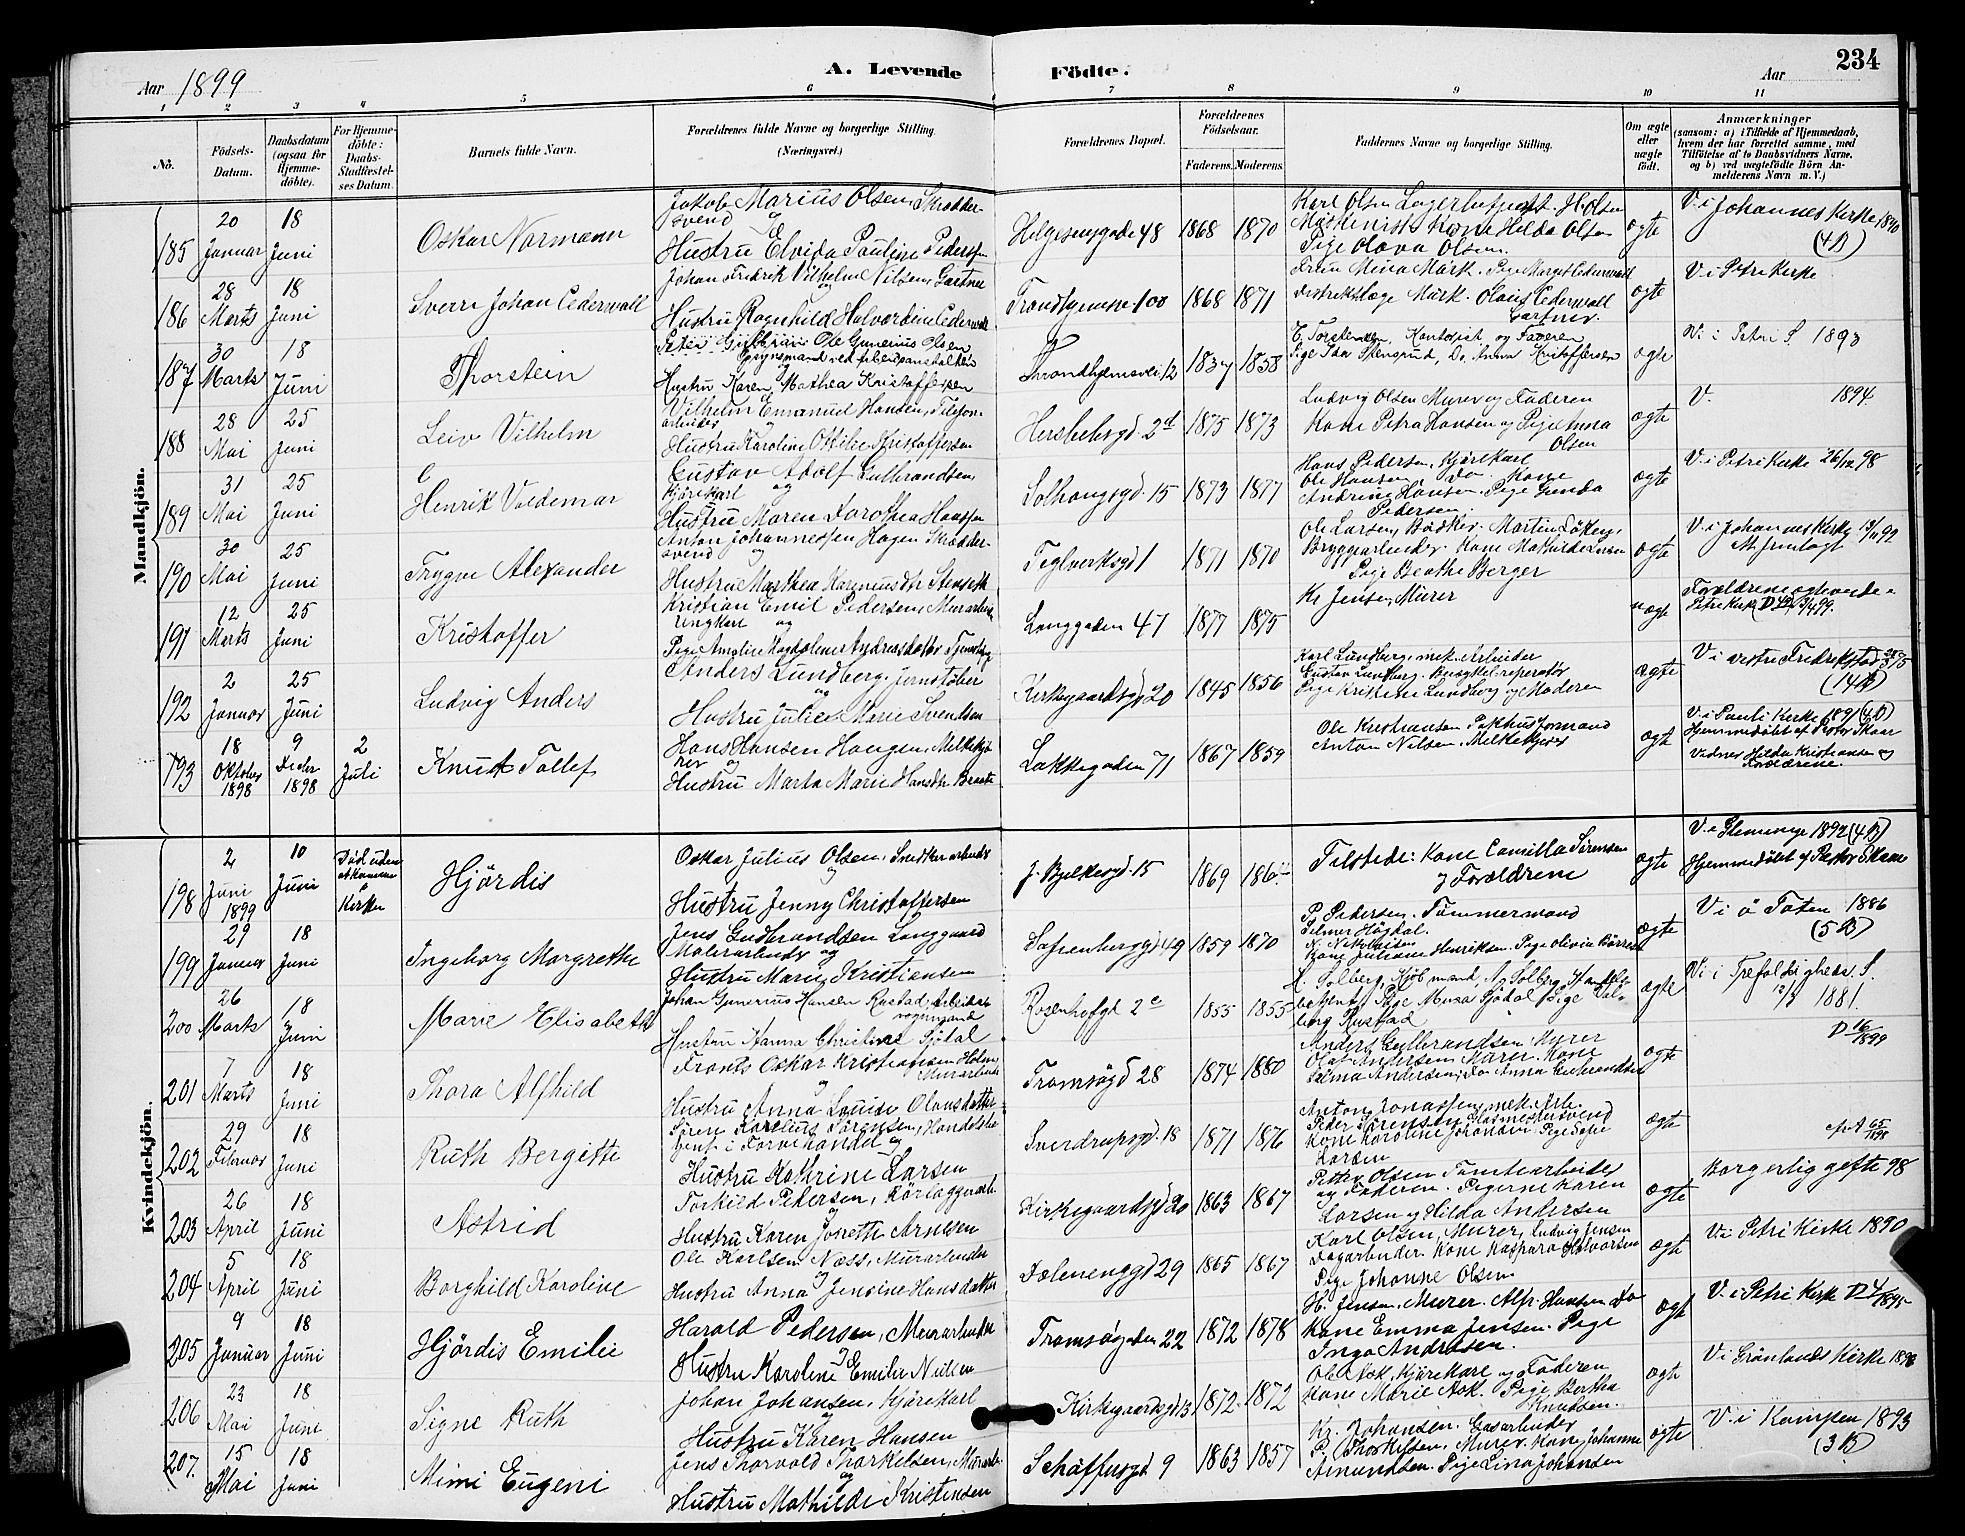 Aar 1899
A. Levende Födte.
Aar
234
1 2 3 4 5 6 7 8 9 10 11
No.
Födsels-Datum.
Daabsdatum (ogsaa for Hjemme-döbte).
For Hjemme-döbte: Daabs-Stadfæstel-ses Datum.
Barnets fulde Navn.
Forældrenes fulde Navne og borgerlige Stilling. (Næringsvei.)
Forældrenes Bopæl.
Forældrenes Födselsaar.
Faderens. Moderens.
Faddernes Navne og borgerlige Stilling.
Om ægte eller uægte födt.
Anmærkninger
(saasom: a) i Tilfælde af Hjemmedaab, hvem der har forrettet samme, med Tilföielse af to Daabsvidners Navne, og b) ved uægtefödte Börn An-melderens Navn m. V.)
Mandkjön.
185 20 Januar 18 Juni Oskar Normann
Jakob Marius Olsen, Skrædder-
svend og
Hustru Elvida Pauline Pedersen
Helgesensgade 48 1868 1870
Maskinist Kone Hilda Olsen
Pige Olava Olsen
ægte
V. i Johannes Kirke 1890
(4 B)
186 28 Marts 18 Juni Sverre Johan Cederwall
Johan Fredrik Vilhelm Nilsen, Gartner
og
Hustru Ragnhild Halvordine Cederwall
Trondhjemsv. 100 1868 1871
Frøken Mina Mürk. Pige Margit Cederwall
Distriktslæge Mürk. Olaus Cederwall
Gartner.
ægte
V. i Petri Kirke
187 30 Marts 18 Juni Thorstein
Ole Gunerius Olsen
Opsynsmand ved Arbeidsanstalten
Hustru Karen Mathea Kristoffersen
Throndhjemsvei. 12 1837 1858
E. Torstensen, Kontorist, og Faderen
Pige Thea Stengrud, Do. Anna Kristoffersen
ægte
V. i Petri S. 1893
188 28 Mai 25 Juni Leiv Vilhelm
Vilhelm Emanuel Hansen, Telefon-
arbeider og
Hustru Karoline Ottilie Kristoffersen
Herslebsgd. 2 d 1875 1873
Ludvig Olsen Murer og Faderen
Kone Petra Hansen og Pige Anna
Olsen
ægte
V. 1894.
189 31 Mai 25 Juni Henrik Valdemar
Gustav Adolf Gulbrandsen,
Kjørekarl og
Hustru Maren Dorothea Hansen
Solhaugsgd. 15 1873 1877
Hans Pedersen, Kjørekarl
Ole Hansen, Do Kone
Andrine Hansen. Pige Gunda
Pedersen.
ægte
V. i Petri Kirke 26/12 98
190 30 Mai 25 Juni Trygve Alexander
Anton Johannessen Hagen Skrædder-
svend og
Hustru Marthea Rasmusdtr Stenseth
Teglverksgd 1 1871 1870
Ole Larsen, Bødker. Martin Løken,
Bryggearbeider. Kone Mathilde Larsen
Pige Beathe Berger
ægte
V. i Johannes Kirke
At. fremlagt
191 12 Marts 25 Juni Kristoffer
Kristian Emil Pedersen, Murarbeider
og
Pige Amalie Magdalene Andreasdatter
Langgaden 47 1877 1875
Kr Jensen, Murer
uægte
Forældrene
Petri Kirke
192 2 Januar 25 Juni Ludvig Anders
Anders Lundberg, Jernstøber
og
Hustru Julie Marie Svendsen
Kirkegaardsgd 20 1845 1856
Karl Lundberg, mek. Arbeider
Gustav Lundberg. Bicyklereperatør
Pige Kristine Lundberg og Moderen
ægte
V i vestre Fredrikstad
(14 B)
793 18 Oktober 1898 9 Decbr 1898 2 Juli Knut Tollef
Hans Hansen Haugen, Melkekjø-
rer og
Hustru Marta Marie Hansdtr Braate
Lakkegaden 71 1867 1859
Ole Kristiansen Pakhusformand
Anton Nilsen, Melkekjører
ægte
V. i Pauli Kirke 1891 (4 B)
Hjemmedøbt af Pastor Skaar
Vidner Hilda Kristiansen og
Forældrene.
Kvindekjön.
198 2 Juni 1899 10 Juni
Død uden
at komme
i
Kirken
Hjördis
Oskar Julius Olsen, Snedkerarbeider
og
Hustru Jenny Christoffersen
J. Bjelkesgd. 15 1869
Tilstede: Kone Camilla Sørensen
og Forældrene
ægte
V. i Glemminge 1892 (4 B)
Hjemmedøbt af Pastor Skaar
199 29 Januar 18 Juni Ingeborg Margrethe
Jens Gudbrandsen Langgaard
Malerarbeider og
Hustru Marie Kristiansen
Sofienberggd 49 1859 1870
P. Pedersen. Tømmermand
Pelmer Høgdal.
N. Nikolaisen
Kone Juliane Henriksen. Pige Olivia Børresen
ægte
V i Ø Toten 1886
(5 B)
200 26 Marts 18 Juni Marie Elisabeth
Johan Gunerius Hansen Rustad, Arbeids-
vognmand
Hustru Hanna Christine Sjødal
Rosenhofgd 2 c 1855 1855
H. Solberg, Kjøbmand, A. Solberg, Handels-
betjent, Pige Musa Sjødal, Pige Val-
borg Rustad
ægte
V. i Trefoldigheds. S.
12/3 1881.
201 7 Marts 18 Juni Thora Alfhild
Frants Oskar Kristiansen Holm
Murarbeider
og
Hustru Anna Louise Olausdatter
Tromsøgd 28 1874 1880
Anders Gulbrandsen, Murer
Olaf Andersen, Murer. Kone
Selma Andersen, Do Anna Gulbrandsen
ægte
D 16/1899
202 29 Februar 18 Juni Ruth Bergitte
Søren Kornelius Sørensen, Handelsbe-
tjent i Farvehandel og
Hustru Kathrine Larsen
Sverdrupsgd. 18 1871 1876
Anton Jonassen, mek. Arb.
Peder Sørensen Glasmestersvend
Kone Karoline Johansen, Pige Sofie
Larsen
ægte
203 26 April 18 Juni Astrid
Torkild Pedersen, Rørlæggerarb.
og
Hustru Karen Jonette Arnesen
Kirkegaardsgd 20 1863 1867
Petter Olsen, Tomtearbeider
og Faderen. Pigerne Karen
Larsen og Hilda Andersen
ægte
Borgerlig gifte 98
204 5 April 18 Juni Borghild Karoline
Ole Karlsen Næss, Murarbeider
og
Hustru Anna Jensine Hansdatter
Dælenenggd 29 1865 1867
Karl Olsen, Murer, Ludvig Jensen
Dagarbeider. Kone Kaspara Halvorsen
Pige Johanne Olsen
ægte
V. i Petri Kirke 1890
205 9 Januar 18 Juni Hjördis Emilie
Harald Pedersen, Murarbeider
og
Hustru Karoline Emilie Nielsen
Tromsøgaden 22 1872 1878
H. Jensen, Murer. Alfr. Hansen Do
Kone Emma Jensen. Pige
Inga Andresen.
ægte
V. i Petri Kirke D 4/1895
206 23 Mai 18 Juni Signe Ruth
Johan Johansen, Kjørekarl
og
Hustru Karen Hansen
Kirkegaardsgd 13 1872 1872
Ole Ask, Kjørekarl og Faderen
Kone Marie Ask. Pige Bertha
Knudsen.
ægte
V. i Grønlands Kirke 1898
207. 15 Mai 18 Juni Mimi Eugeni
Jens Thorvald Thorkelsen, Murarb.
og
Hustru Mathilde Kristensen
Schäffersgd 9 1863 1857
Kr. Johansen. Gasarbeider
P. Thorkelsen, Murer. Kone Johanne
Amundsen. Pige Lina Johansen
ægte
V. i Kampen 1893
(3 B)